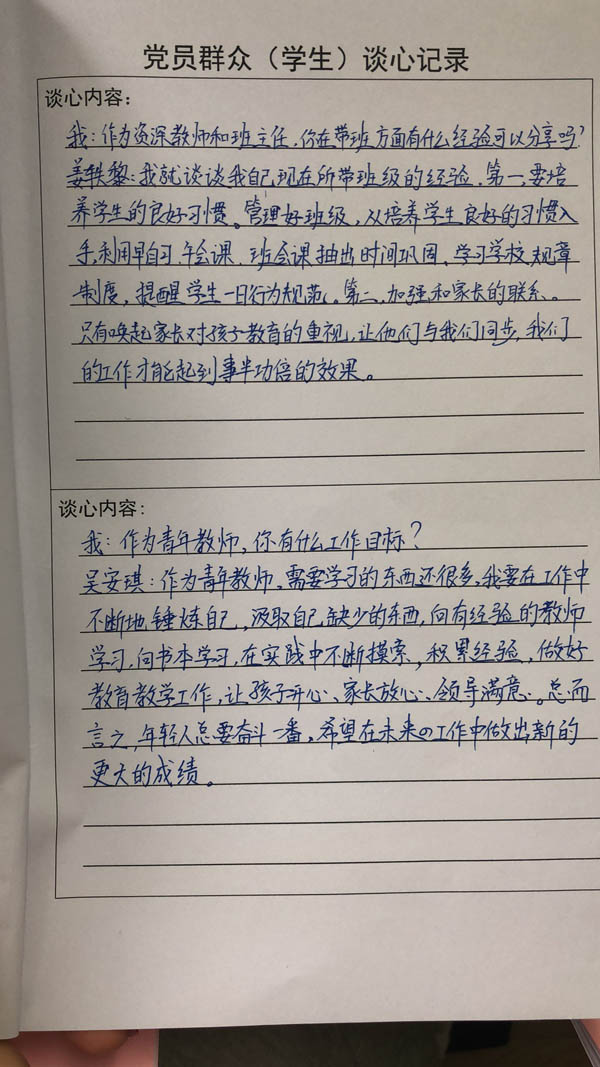 党员群众（学生）谈心记录
谈心内容：
我：作为资深教师和班主任，你在带班方面有什么经验可以分享吗？
姜轶黎：我就谈谈我自己现在所带班级的经验。第一，要培
养学生的良好习惯。管理好班级，从培养学生良好的习惯入
手，利用早自习、午会课、班会课抽出时间巩固、学习学校规章
制度，提醒学生一日行为规范。第二，加强和家长的联系。
只有唤起家长对孩子教育的重视，让他们与我们同步，我们
的工作才能起到事半功倍的效果。
谈心内容：
我：作为青年教师，你有什么工作目标？
吴安琪：作为青年教师，需要学习的东西还很多，我要在工作中
不断地锤炼自己，汲取自己缺少的东西，向有经验的教师
学习，向书本学习，在实践中不断摸索，积累经验，做好
教育教学工作，让孩子开心、家长放心、领导满意。总而
言之，年轻人总要奋斗一番，希望在未来の工作中做出新的
更大的成绩。